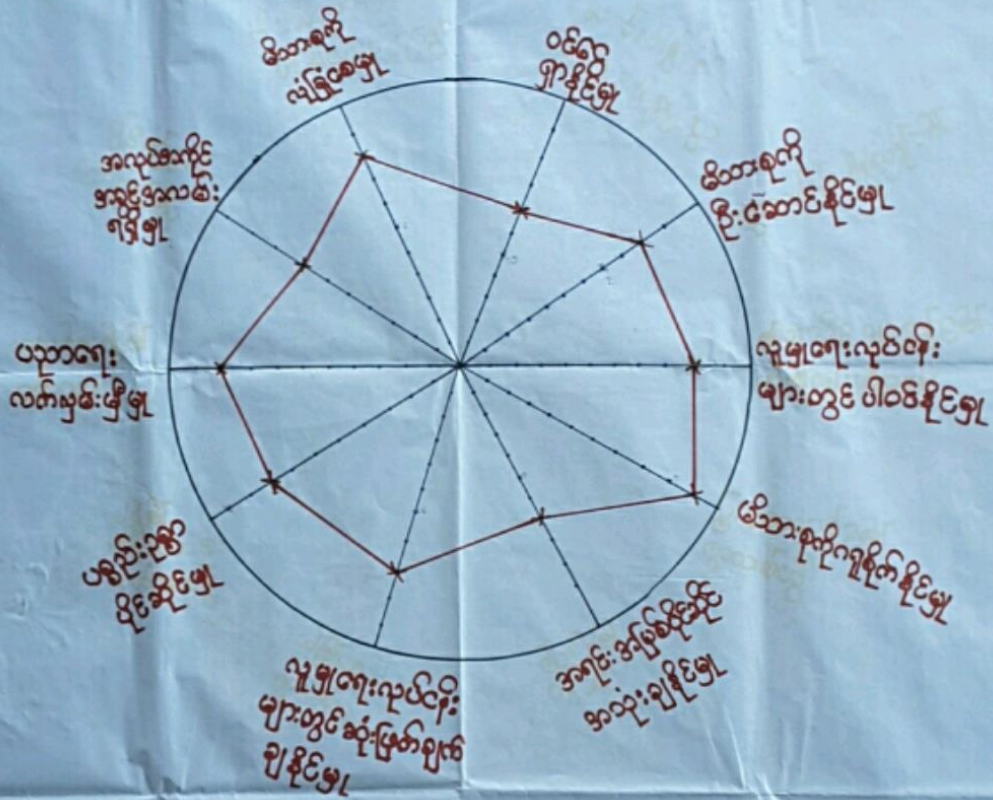 မိသားစုကို
လုံခြုံစေမှု
ဝင်ငွေ
ရှာနိုင်မှု
မိသားစုကို
ဦးဆောင်နိုင်မှု
လူမှုရေးလုပ်ငန်း
များတွင် ပါဝင်နိုင်မှု
မိသားစုကိုဂရုစိုက်နိုင်မှု
အရင်းအမြစ်ပိုင်ဆိုင်
အသုံးချနိုင်မှု
လူမှုရေးလုပ်ငန်း
များတွင်ဆုံးဖြတ်ချက်
ချနိုင်မှု
ပစ္စည်းဥစ္စာ
ပိုင်ဆိုင်မှု
ပညာရေး
လက်လှမ်းမှီမှု
အလုပ်အကိုင်
အခွင့်အလမ်း
ရရှိမှု